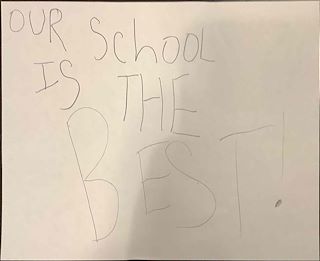 OUR SChOOL
IS THE
BEST!